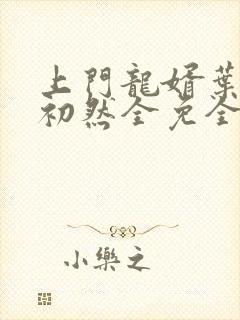 上門龍婿葉
初然全免全
小樂之